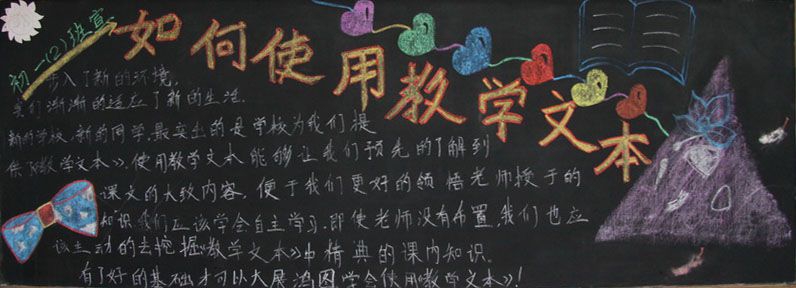 初一(2)班宣
如何使用教学文本
步入了新的环境,
我们渐渐的适应了新的生活.
新的学校,新的同学.最突出的是学校为我们提
供了《教学文本》.使用教学文本能够让我们预先的了解到
课文的大致内容,便于我们更好的领悟老师授于的
知识我们应该学会自主学习.即使老师没有布置,我们也应
该主动的去挖掘《教学文本》中精典的课内知识.
有了好的基础才可以大展鸿图学会使用《教学文本》!